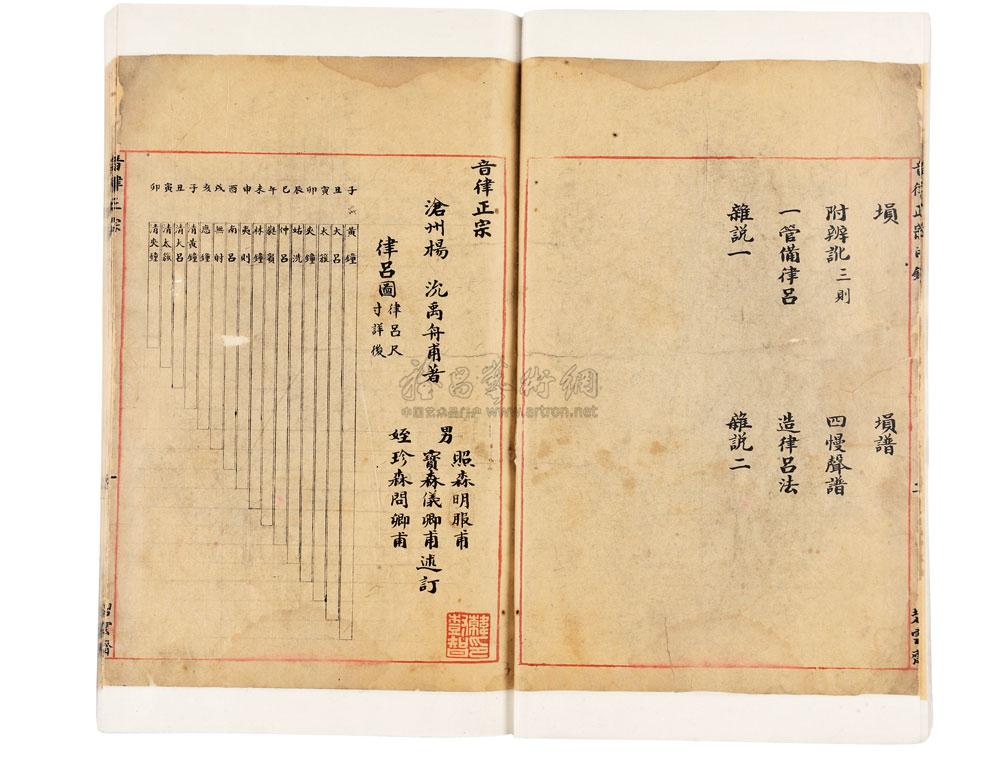 塤
塤譜
附辨訛三則
四慢聲譜
一管備律呂
造律呂法
雜説一
雜説二
二
音律正宗
滄州楊 沇禹舟甫著
男
照森明服甫
寳森儀卿甫
姪
珍森問卿甫
述訂
律呂圖
律呂尺
寸詳後
子 黃鐘
丑 大呂
寅 太簇
卯 夾鐘
辰 姑洗
巳 仲呂
午 蕤賓
未 林鐘
申 夷則
酉 南呂
戌 無射
亥 應鐘
子 清黃鐘
丑 清大呂
寅 清太簇
卯 清夾鐘
音律正宗
一
中国艺术品门户
www.artron.net